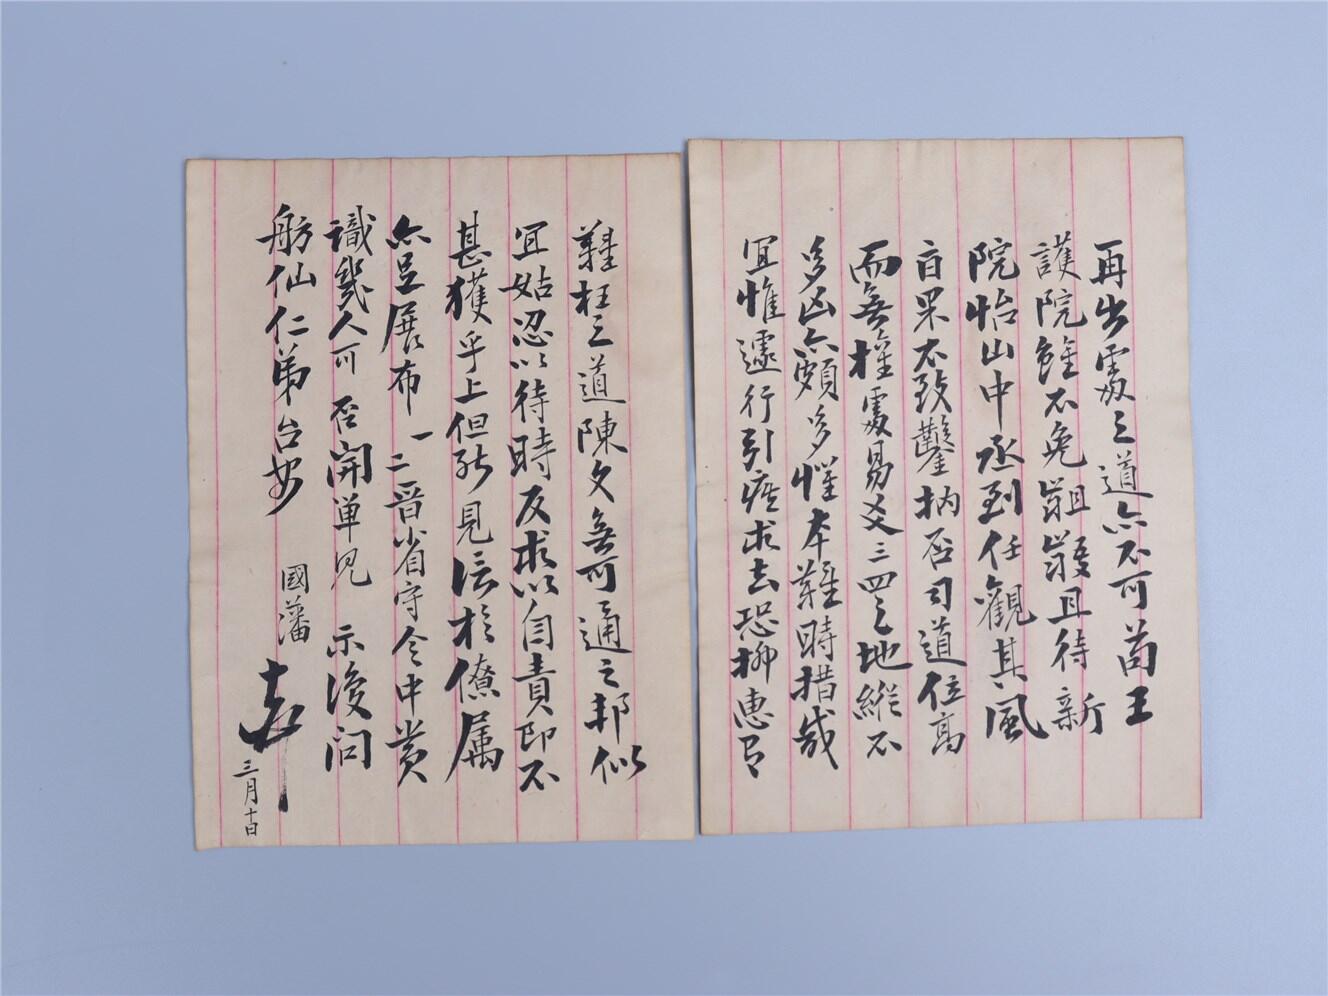 再出處之道亦不可苟王
護院雖不免齟齬且待新
院怡山中丞到任觀其風
旨果不致鑿枘否司道位高
而無權處易爻三四之地縱不
多凶亦頗多懼本難時措咸
宜惟遽行引疾求去恐柳惠有
難枉之道陳文無可通之邦似
宜姑忍以待時反求以自責即不
甚獲乎上但能見信於僚属
亦足展布一二晉省守令中賞
識幾人可否開單見示復問
舫仙仁弟台安
國藩
三月十日